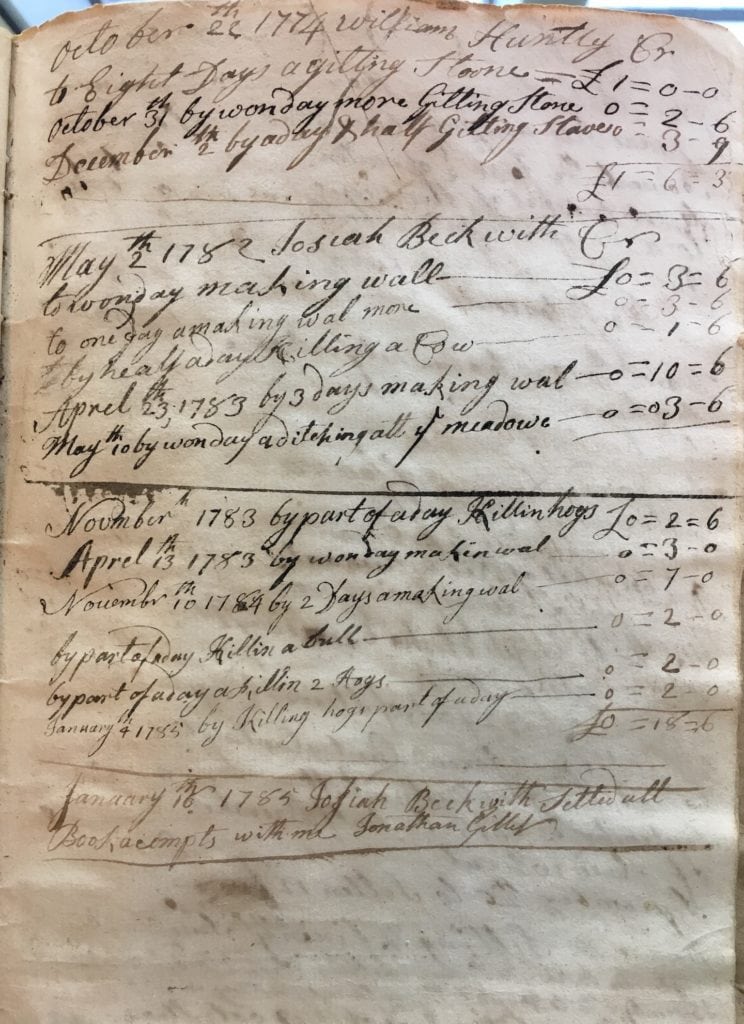 October 22th 1774 William Huntly Cr
to Eight Days agitting Stoone — £1=0-0
October 31th by wonday more Gitting Stone 0=2-6
December 2th by aday & half Gitting Staves 0=3-9
£1=6=3
May 2th 1782 Josiah Beckwith Cr
to wonday making wall — £0=3=6
to one day amaking wal more — 0-3-6
by healf aday Killing a Cow — 0-1-6
Aprel 23th 1783 by 3 days making wal — 0=10=6
May 10th by wonday aditching att ye meadowe — 0=03-6
Novmber 1783 by part of aday Killin hogs £0=2=6
Aprel 13th 1783 by wonday makin wal — 0=3-0
Novembr 10th 1784 by 2 Days amaking wal — 0=7-0
by part of aday Killin a bull — 0=2-0
by part of aday a Killin 2 Hogs — 0=2-0
January 4 1785 by Killing hogs part of aday — 0=2-0
£0=18=6
January 16th 1785 Josiah Beckwith Setled all
Book acompts with me Jonathan Gillet